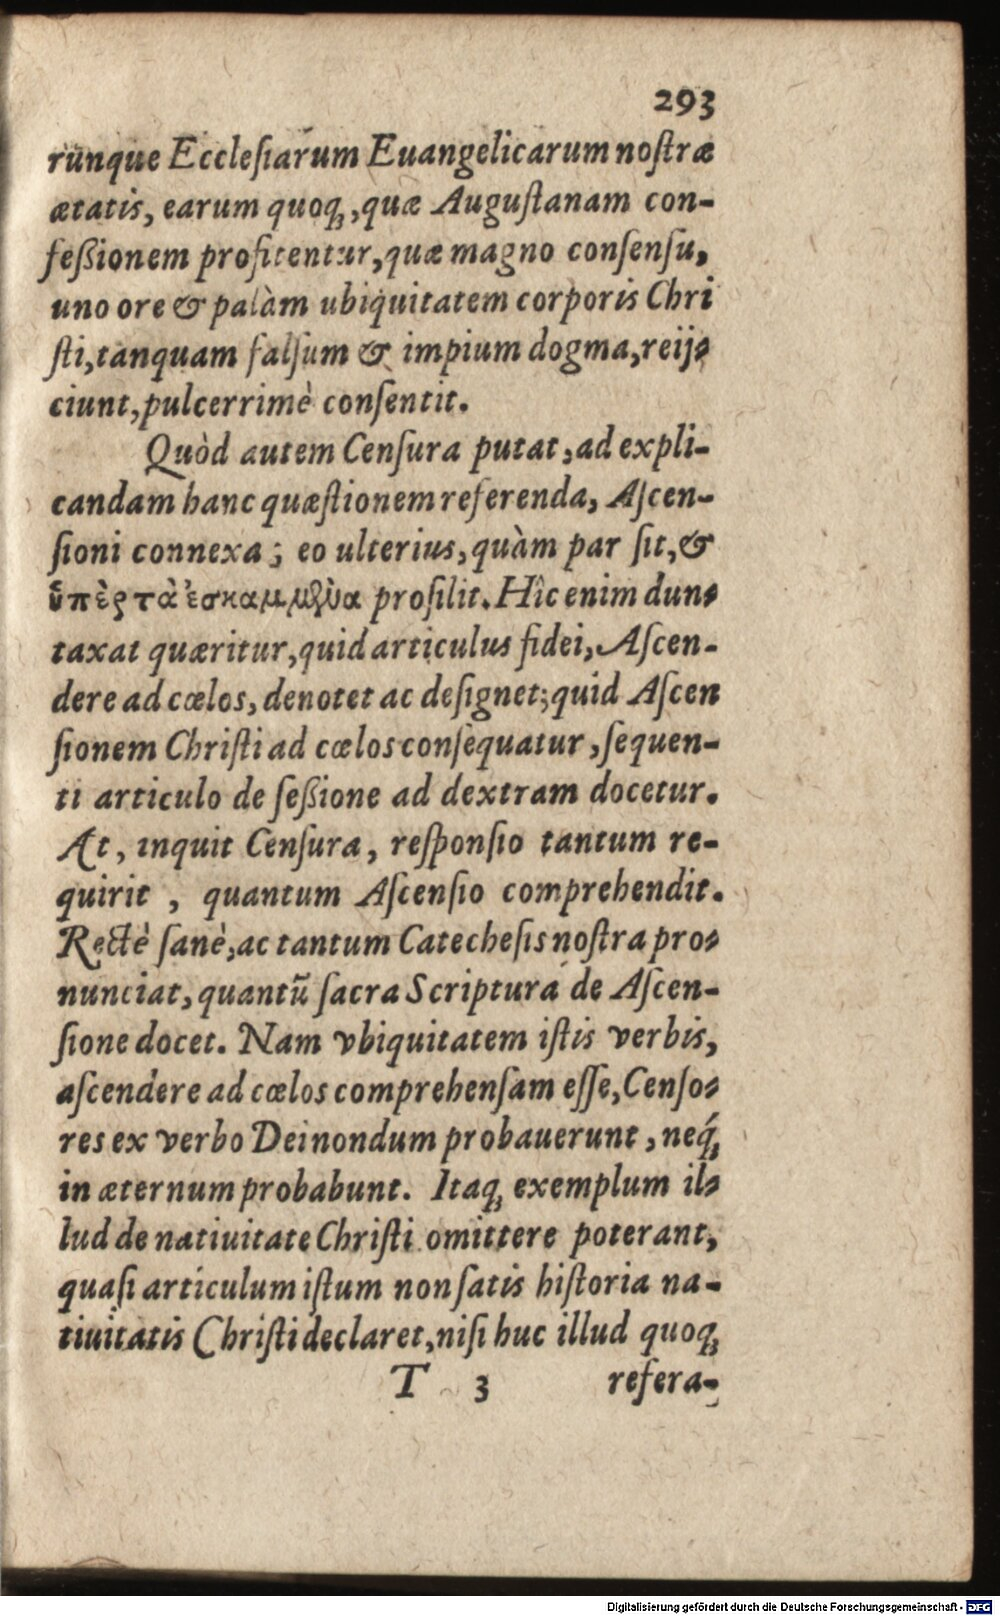 293
runque Eccleſiarum Euangelicarum noſtræ
ætatis, earum quoq;, quæ Auguſtanam con-
feßionem profitentur, quæ magno conſenſu,
uno ore & palàm ubiquitatem corporis Chri
ſti, tanquam falſum & impium dogma, reij-
ciunt, pulcerrimè conſentit.
Quòd autem Cenſura putat, ad expli-
candam hanc quæſtionem referenda, Aſcen-
ſioni connexa; eo ulterius, quàm par ſit, &
ὑπὲρ τὰ ἐσκαμμένα proſilit. Hîc enim dun-
taxat quæritur, quid articulus fidei, Aſcen-
dere ad cœlos, denotet ac deſignet; quid Aſcen
ſionem Chriſti ad cœlos conſequatur, ſequen-
ti articulo de ſeßione ad dextram docetur.
At, inquit Cenſura, reſponſio tantum re-
quirit, quantum Aſcenſio comprehendit.
Rectè ſanè, ac tantum Catecheſis noſtra pro-
nunciat, quantũ ſacra Scriptura de Aſcen-
ſione docet. Nam vbiquitatem iſtis verbis,
aſcendere ad cœlos comprehenſam eſſe, Cenſo-
res ex verbo Dei nondum probauerunt, neq́;
in æternum probabunt. Itaq; exemplum il-
lud de natiuitate Chriſti omittere poterant,
quaſi articulum iſtum non ſatis hiſtoria na-
tiuitatis Chriſti declaret, niſi huc illud quoq;
T 3 refera-
Digitalisierung gefördert durch die Deutsche Forschungsgemeinschaft - DFG